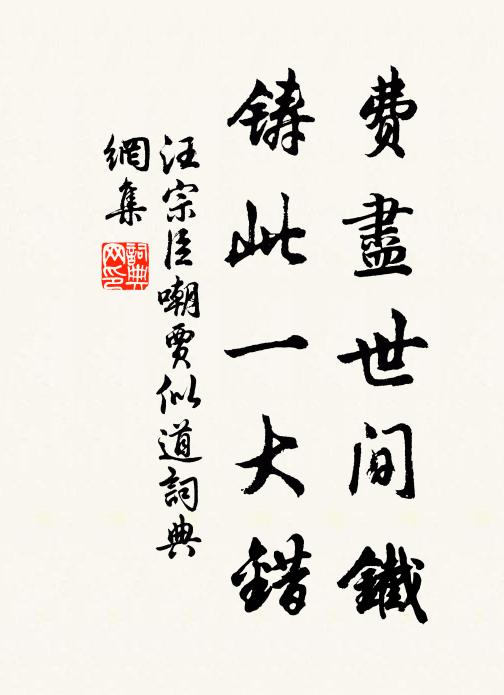 費盡世间鐵
鑄此一大錯
汪宗臣嘲賈似道詞典
網集
詞典网印